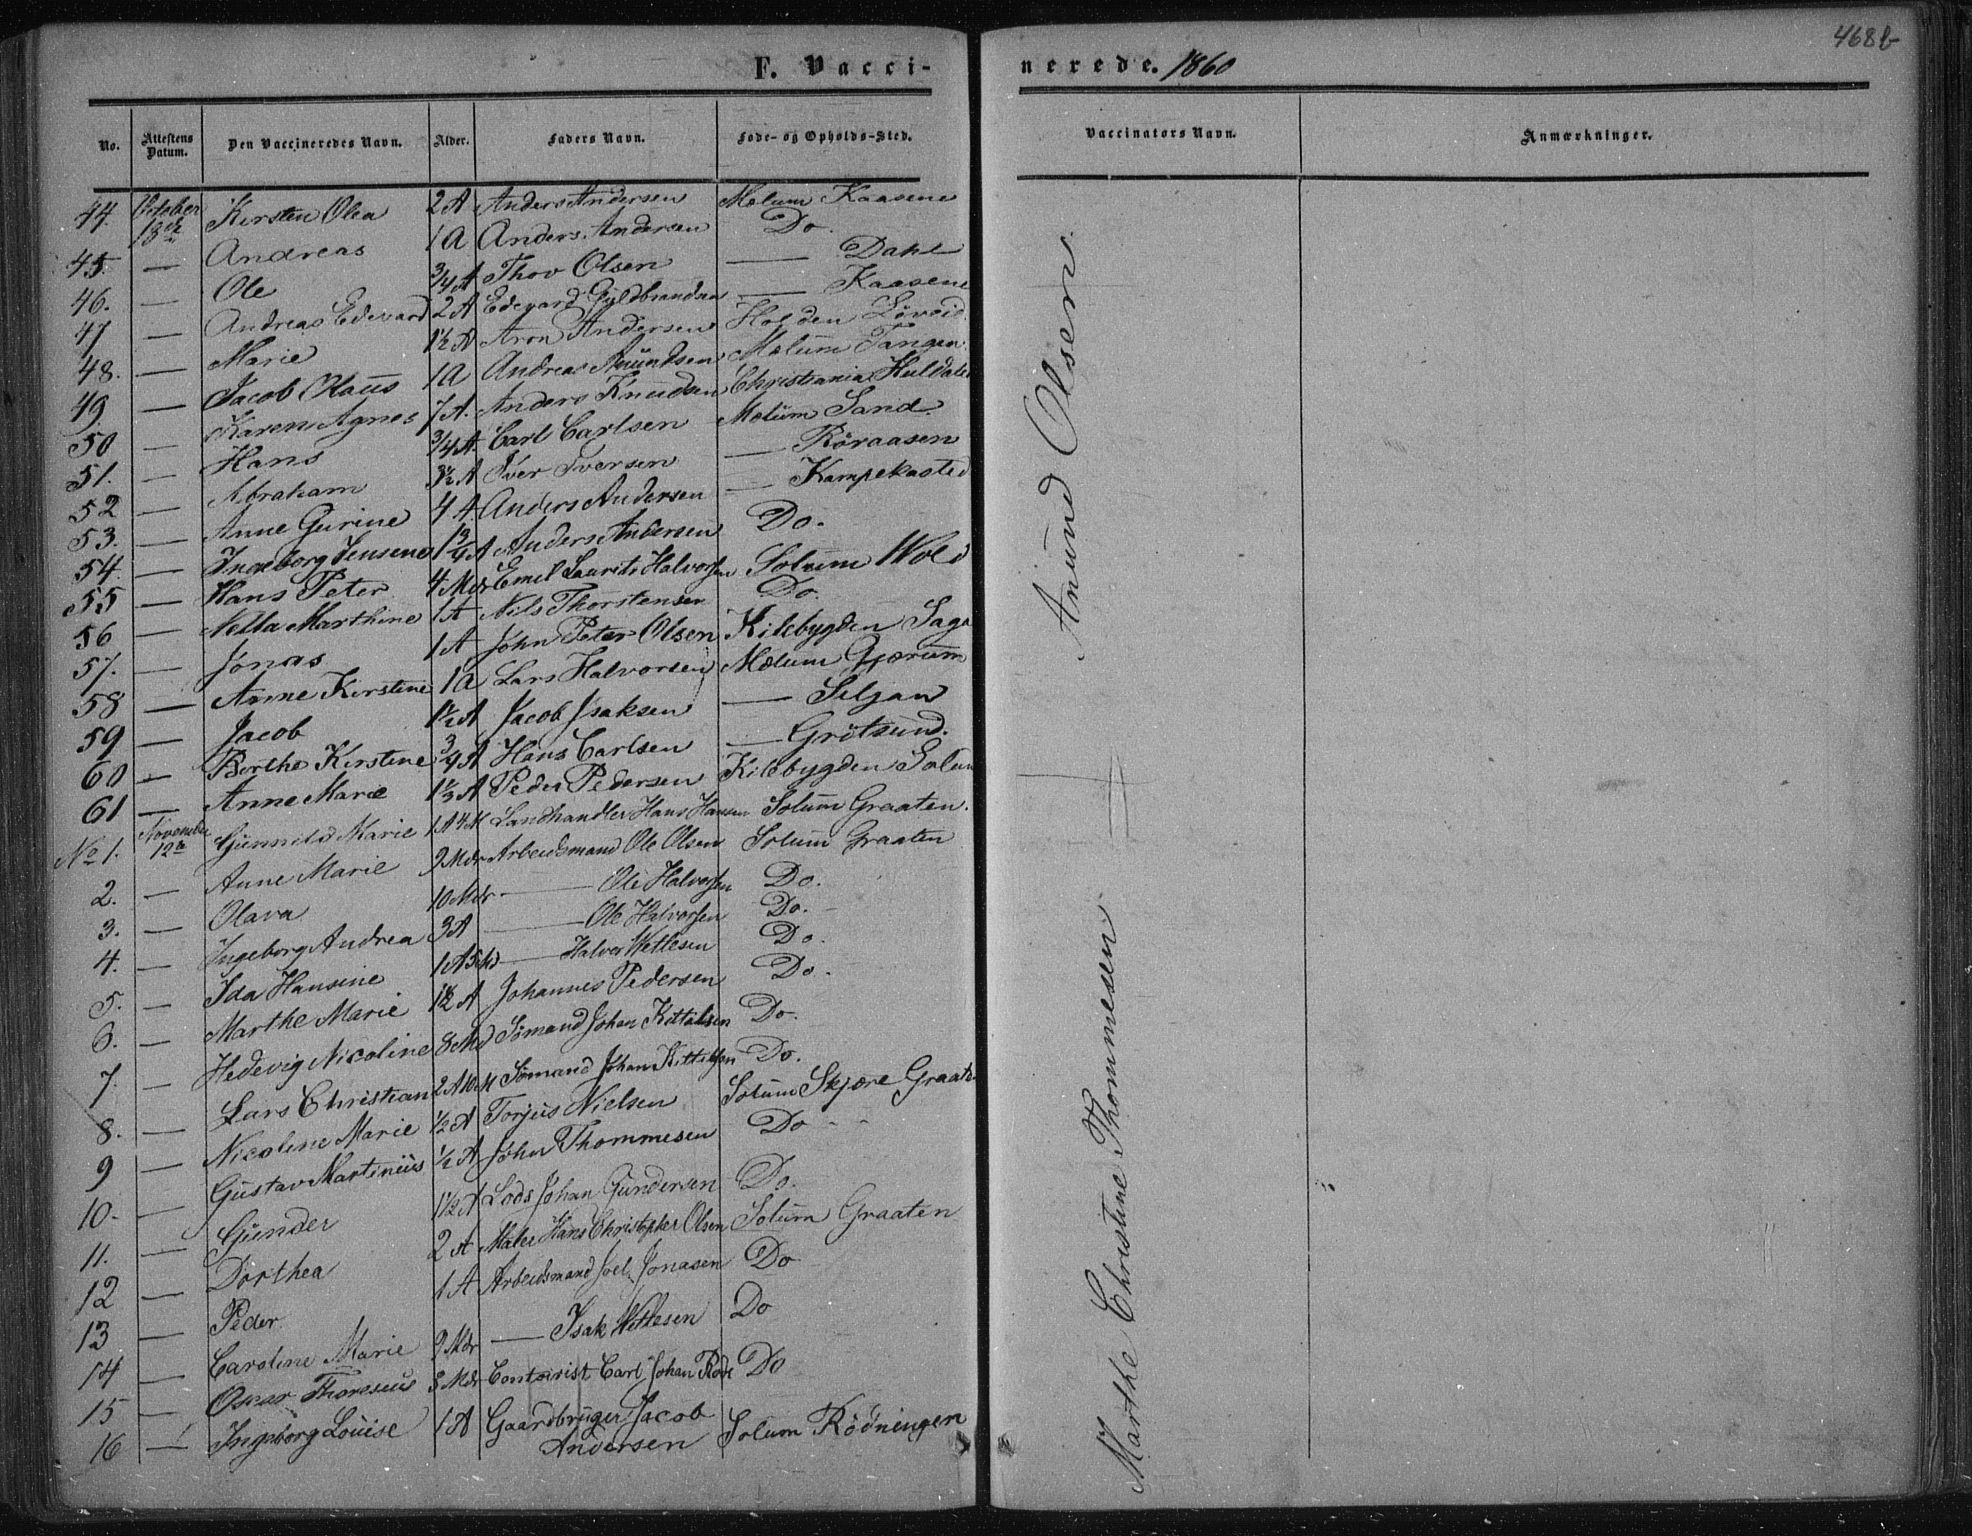 468b
F. Vaccinerede. 1860
No. | Attestens Datum. | Den Vaccineredes Navn. | Alder. | Faders Navn. | Føde- og Opholds-Sted. | Vaccinators Navn. | Anmærkninger.
44. October 18de Kirsten Olea 2 A Anders Andersen Mælum Kaasene
45. — Andreas 1 A Anders Andersen Do.
46. — Ole 3/4 A Thov Olsen — Dahl
47 — Andreas Edevard 2 A Edevard Gyldbrandsen — Kaasene
48. — Marie 1½ A Aron Andersen Holden Løveid
49 — Jacob Olaus 1 A Andreas Amundsen Mælum Tangen
50 — Karen Agnes 7 A. Anders Knudsen Christiania
51. — Hans 3/4 A. Carl Carlsen Mælum Sand.
52 — Abraham 3½ A Iver Iversen — Röraasen
53. — Anne Gurine 4 A. Anders Andersen — Kampekasted
54. — Ingeborg Jensene 1 3/4 A Anders Andersen Do.
55 — Hans Peter 4 Mdr Emil Laurits Halvorsen Solum Wold
56 — Nella Marthine 1 A Nils Thorstensen Do.
57. — Jonas 1 A John Peter Olsen Kilebygden Saga
58 — Anne Kirstine 1 A Lars Halvorsen Mælum Gjærum
59 — Jacob 1½ A Jacob Isaksen — Siljan
60 — Berthe Kirstine 3/4 A Hans Carlsen — Grötsund.
61 — Anne Marie 1½ A Peder Pedersen Kilebygden Solum
No 1. November 12te Gunnild Marie 1 A 4 M Landhandler Hans Hansen Solum Graaten.
2. — Anne Marie 9 Mdr Arbeidsmand Ole Olsen Solum Graaten
3. — Olava 10 Mdr — Ole Halvorsen Do.
4. — Ingeborg Andrea 3 A — Ole Halvorsen Do.
5. — Ida Hansine 1 A 5 Md — Halvor Wetlesen Do.
6. — Marthe Marie 1½ A Johannes Pedersen Do.
7. — Hedevig Nicoline 8 Md Sömand Johan Kittilsen Do.
8. — Lars Christian 2 A 10 M Sömand Johan Kittilsen Do.
9 — Nicoline Marie ½ A Torjus Nielsen Solum Skjære Graaten
10. — Gustav Martinius ½ A John Thommesen Do
11. — Gunder 1½ A Lods Johan Gundersen Do.
12 — Dorthea 2 A Maler Hans Christopher Olsen Solum Graaten
13 — Peder 1 A Arbeidsmand Joel Jonasen Do
14 — Caroline Marie 9 Mdr — Isak Wetlesen Do
15 — Oscar Thoresius 8 Mdr Contorist Carl Johan Rode Do
16 — Ingeborg Louise 1 A Gaardbruger Jacob Andersen Solum Rödningen
Anund Olsen
Marthe Christine Thommesen